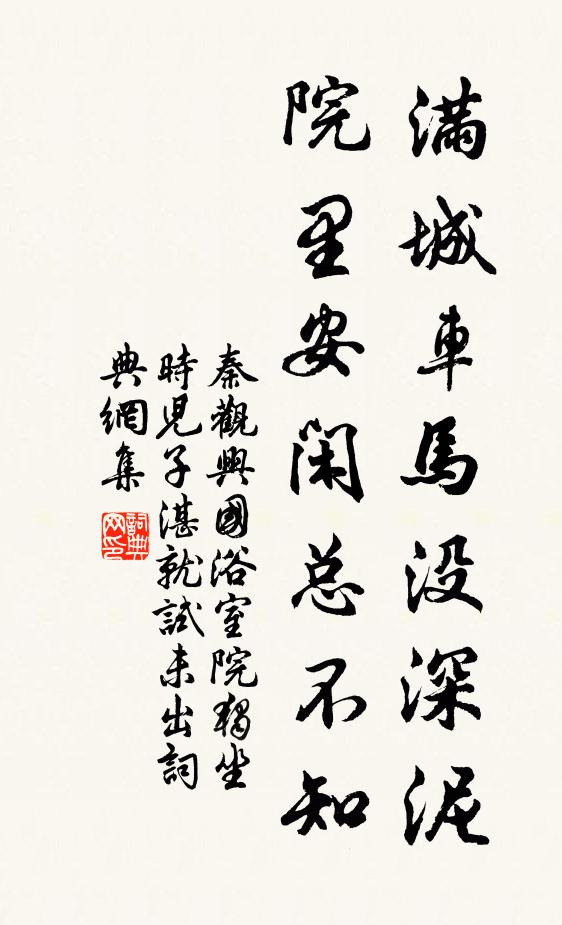 满城車馬没深泥
院里安閑总不知
秦觀興國浴室院獨坐
時児子湛就試未出詞
典網集
詞典网印